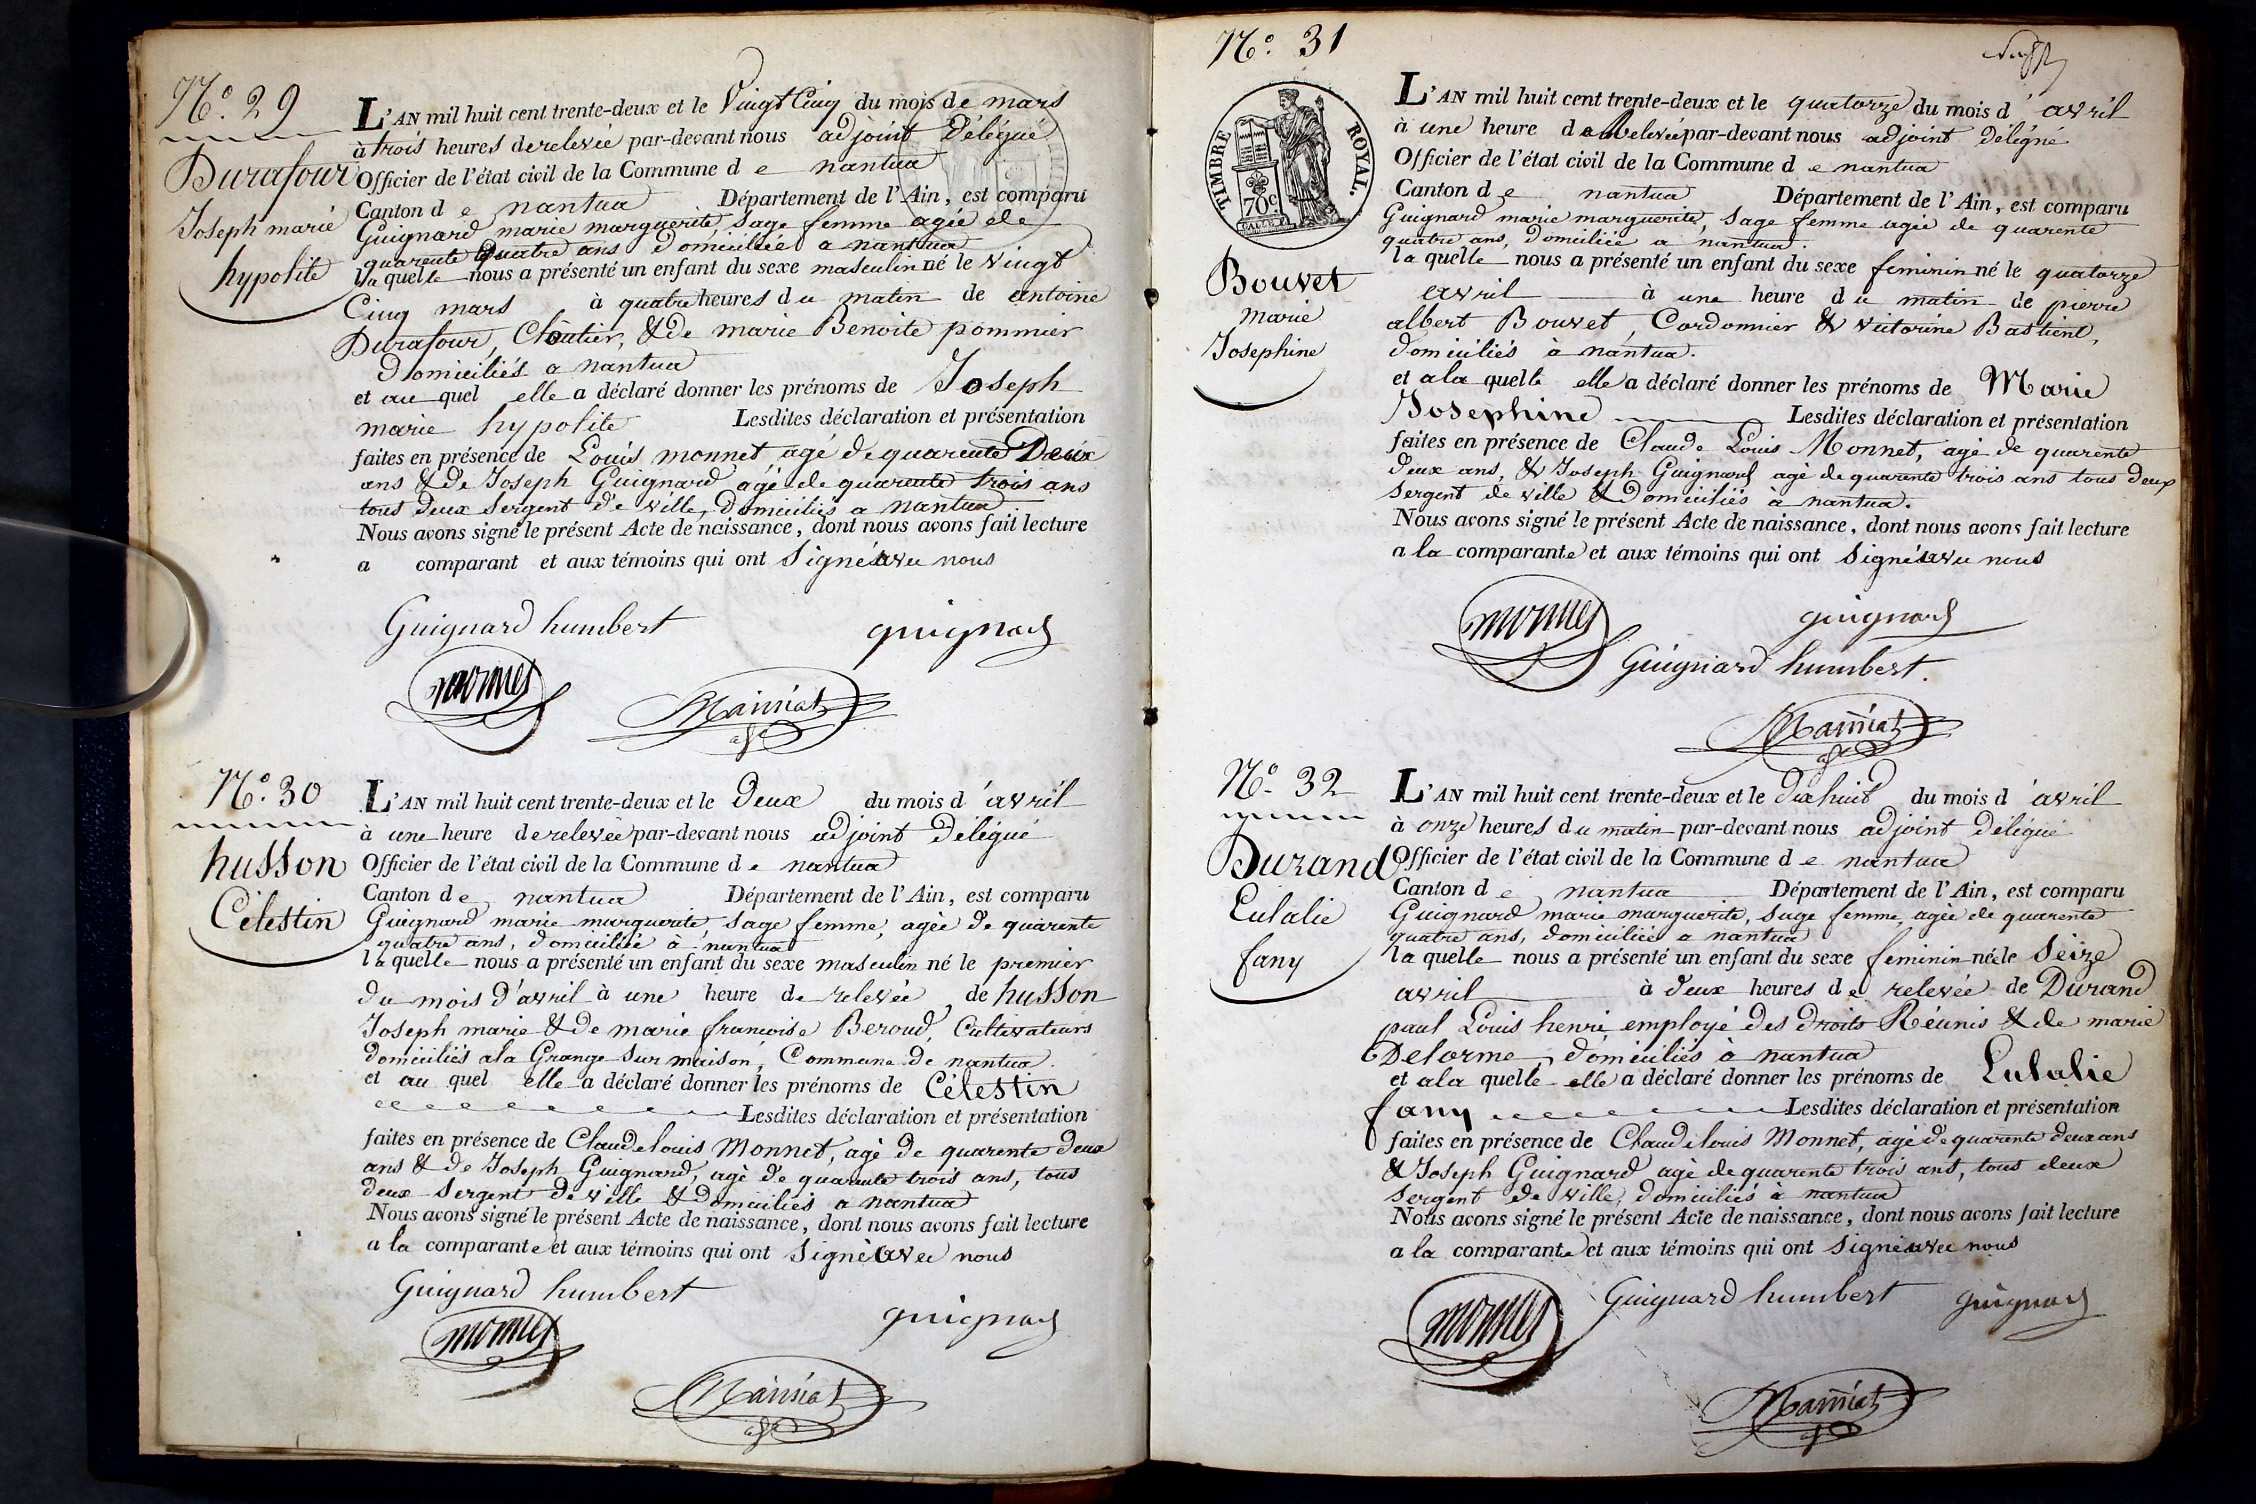 N.° 29
Durafour
Joseph marie
hypolite
L'AN mil huit cent trente-deux et le Vingt Cinq du mois de mars
à trois heures de relevée par-devant nous adjoint délégué
Officier de l'état civil de la Commune de nantua
Canton de nantua Département de l'Ain, est comparu
Guignard marie marguerite, sage femme agée de
quarente quatre ans domiciliée a nantua
la quelle nous a présenté un enfant du sexe masculin né le vingt
Cinq mars à quatre heures du matin de antoine
Durafour, Cloutier, & de marie Benoite pommier
domiciliés a nantua
et au quel elle a déclaré donner les prénoms de Joseph
marie hypolite Lesdites déclaration et présentation
faites en présence de Louis monnet agé de quarente Deux
ans & de Joseph Guignard agé de quarente trois ans
tous deux Sergent de ville, domiciliés a nantua
Nous avons signé le présent Acte de naissance, dont nous avons fait lecture
a comparant et aux témoins qui ont Signé avec nous
Guignard humbert
guignard
monnet
Manniat
N.° 30
husson
Célestin
L'AN mil huit cent trente-deux et le Deux du mois d'avril
à une heure de relevée par-devant nous adjoint délégué
Officier de l'état civil de la Commune de nantua
Canton de nantua Département de l'Ain, est comparu
Guignard marie marguerite, sage femme, agée de quarente
quatre ans, domiciliée à nantua
la quelle nous a présenté un enfant du sexe masculin né le premier
du mois d'avril à une heure de relevée de husson
Joseph marie & de marie francoise Beroud, Cultivateurs
domiciliés a la Grange sur maison, Commune de nantua
et au quel elle a déclaré donner les prénoms de Célestin
Lesdites déclaration et présentation
faites en présence de Claude louis Monnet, agé de quarente deux
ans & de Joseph Guignard, agé de quarente trois ans, tous
deux Sergent de ville & domiciliés a nantua
Nous avons signé le présent Acte de naissance, dont nous avons fait lecture
a la comparante et aux témoins qui ont signé avec nous
Guignard humbert
guignard
monnet
Manniat
N.° 31
TIMBRE ROYAL.
70c
Bouvet
marie
Josephine
L'AN mil huit cent trente-deux et le quatorze du mois d'avril
à une heure de relevée par-devant nous adjoint délégué
Officier de l'état civil de la Commune de nantua
Canton de nantua Département de l'Ain, est comparu
Guignard marie marguerite, sage femme agée de quarente
quatre ans, domiciliée a nantua.
la quelle nous a présenté un enfant du sexe feminin né le quatorze
avril à une heure du matin de pierre
albert Bouvet, Cordonnier & victorine Bastient,
domiciliés à nantua.
et a la quelle elle a déclaré donner les prénoms de Marie
Josephine Lesdites déclaration et présentation
faites en présence de Claude Louis Monnet, agé de quarente
deux ans, & Joseph Guignard agé de quarente trois ans tous deux
sergent de ville & domiciliés à nantua.
Nous avons signé le présent Acte de naissance, dont nous avons fait lecture
a la comparante et aux témoins qui ont signé avec nous
monnet
guignard
Guignard humbert.
Manniat
N.° 32
Durand
Eulalie
fany
L'AN mil huit cent trente-deux et le dix huit du mois d'avril
à onze heures du matin par-devant nous adjoint délégué
Officier de l'état civil de la Commune de nantua
Canton de nantua Département de l'Ain, est comparu
Guignard marie marguerite, sage femme, agée de quarente
quatre ans, domiciliée a nantua
la quelle nous a présenté un enfant du sexe feminin née le Seize
avril à deux heures de relevée de Durand
paul Louis henri employé des droits Réunis & de marie
Delorme, domiciliés à nantua
et a la quelle elle a déclaré donner les prénoms de Eulalie
fany Lesdites déclaration et présentation
faites en présence de Claude louis Monnet, agé de quarente deux ans
& Joseph Guignard agé de quarente trois ans, tous deux
sergent de ville, domiciliés à nantua
Nous avons signé le présent Acte de naissance, dont nous avons fait lecture
a la comparante et aux témoins qui ont signé avec nous
Guignard humbert
guignard
monnet
Manniat